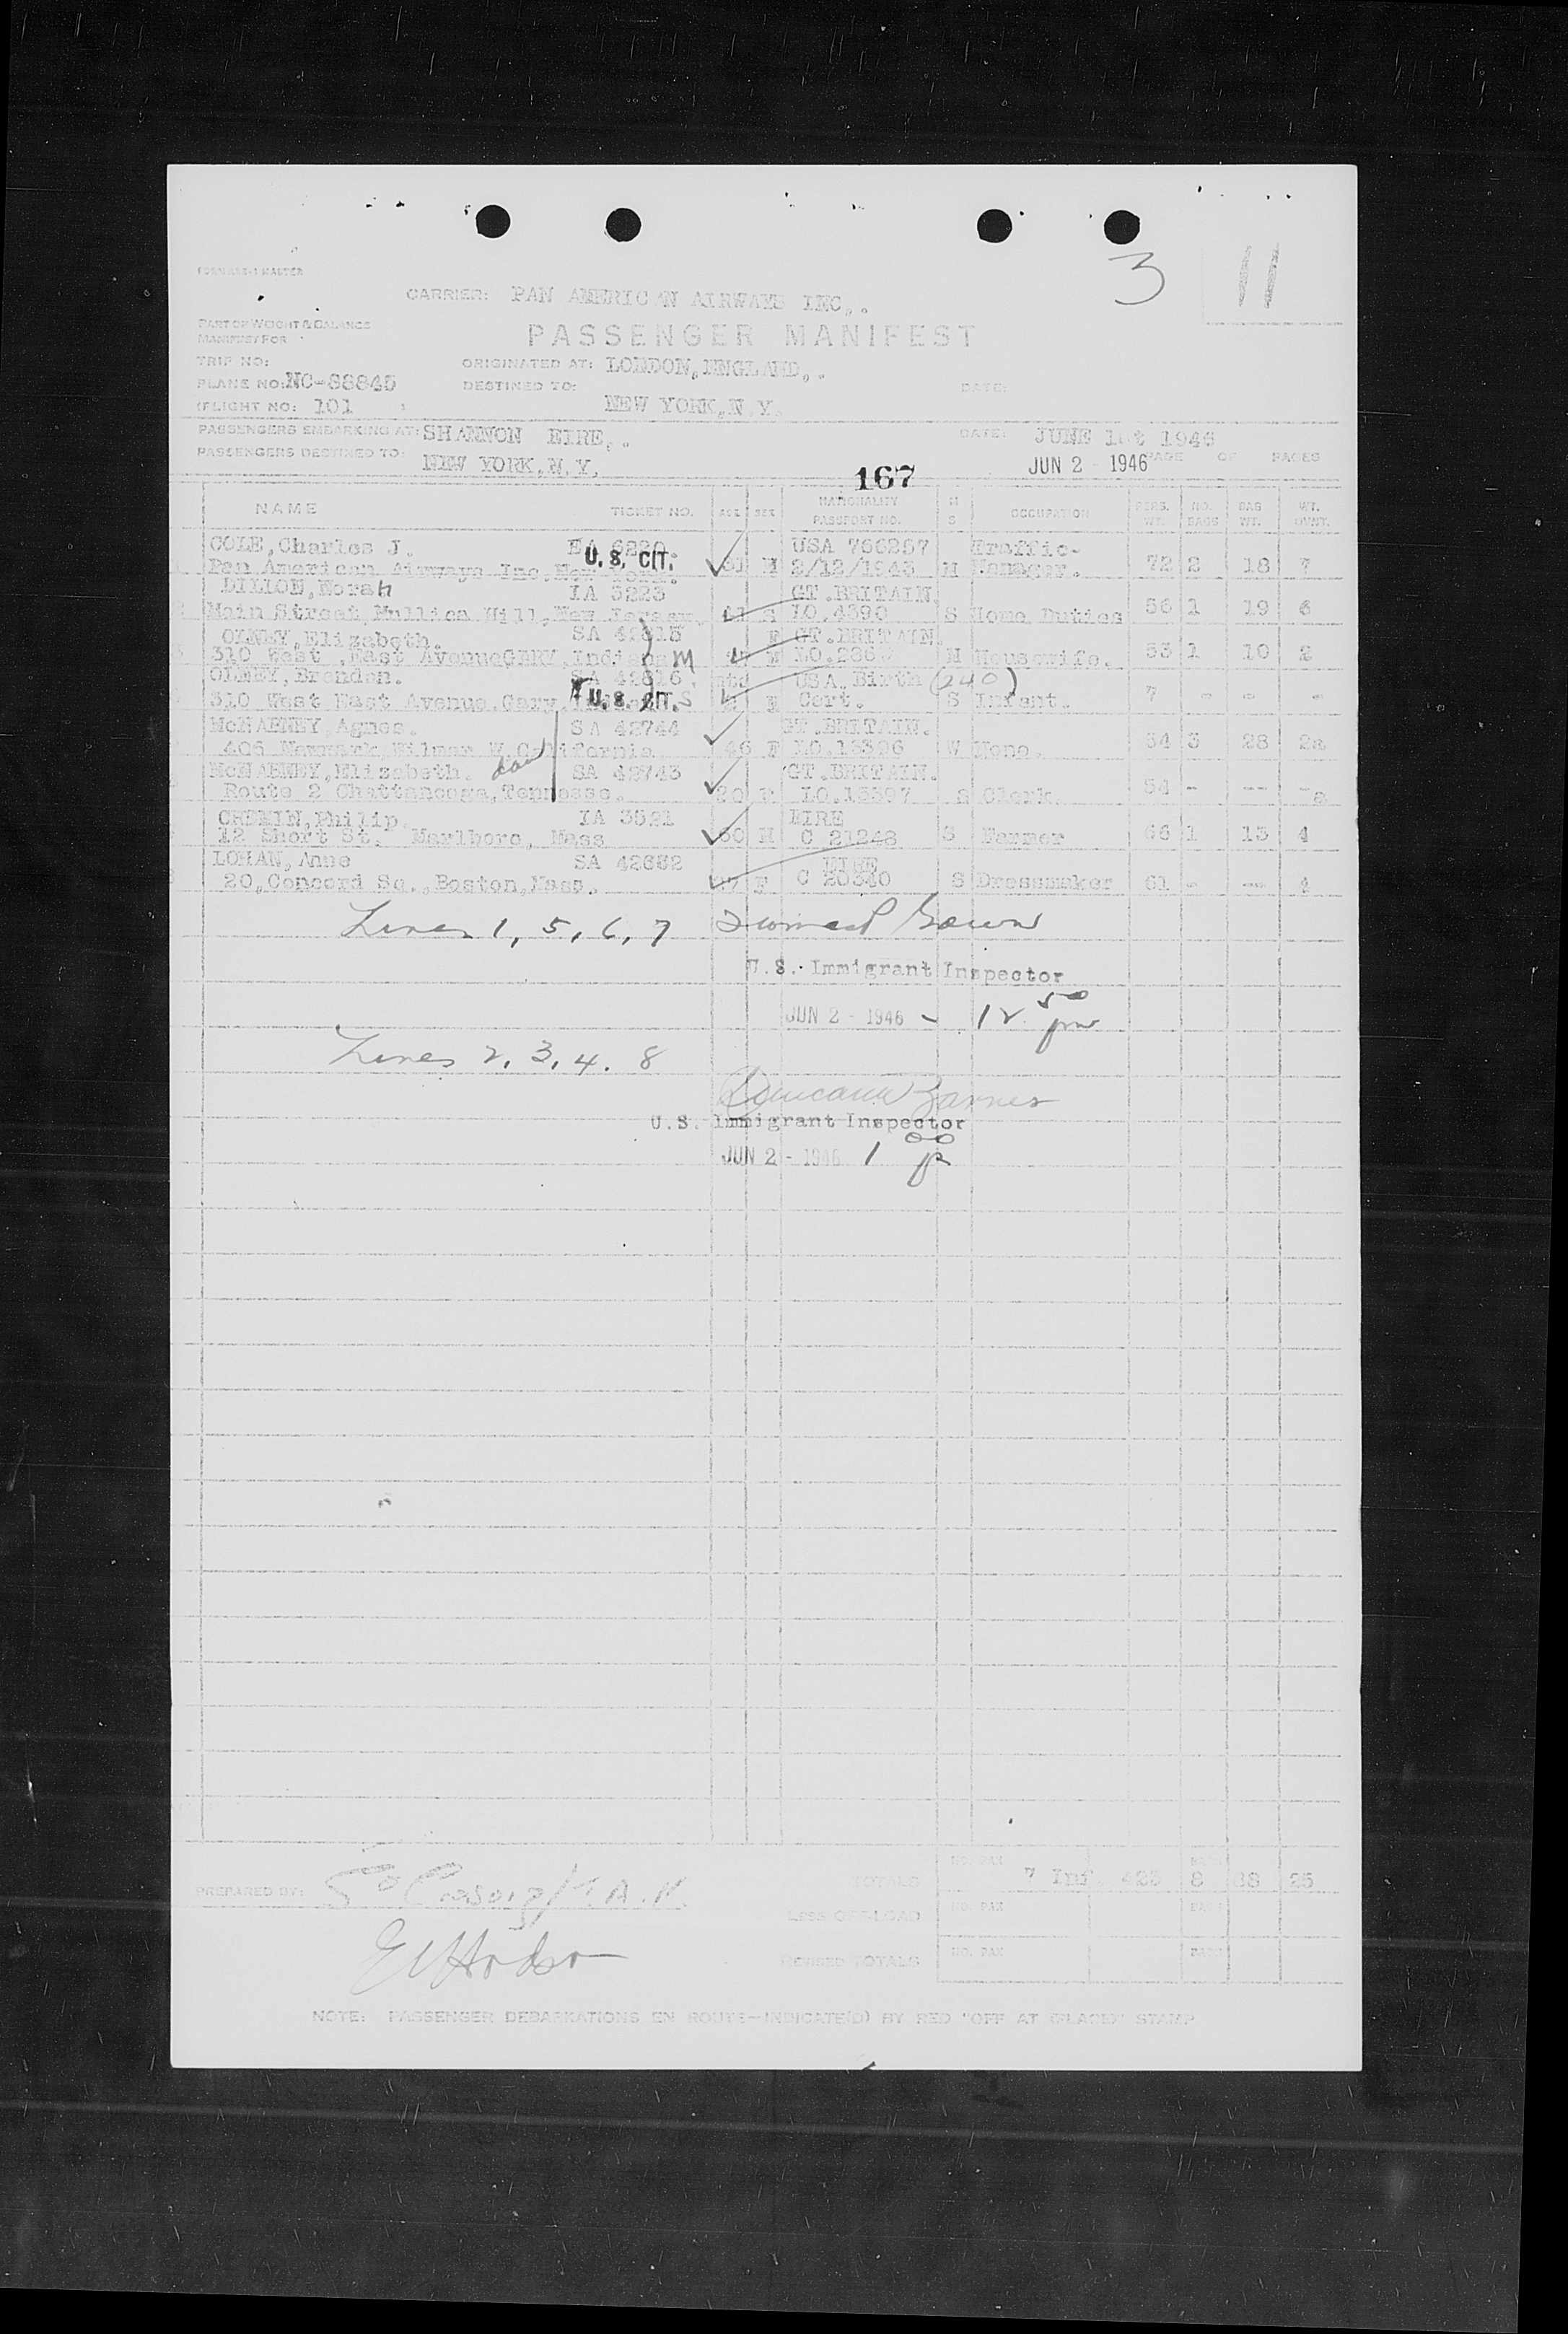 3
11
FORM MASTER
CARRIER: PAN AMERICAN AIRWAYS INC,.
PART OF WEIGHT & BALANCE
MANIFEST FOR
PASSENGER MANIFEST
TRIP NO:
ORIGINATED AT: LONDON, ENGLAND,.
PLANE NO: NC-88845
DESTINED TO:
DATE:
(FLIGHT NO: 101 )
NEW YORK, N.Y.
PASSENGERS EMBARKING AT: SHANNON EIRE,.
DATE: JUNE 1st 1946
PASSENGERS DESTINED TO: NEW YORK, N.Y.
JUN 2 - 1946 PAGE OF PAGES
167
NAME TICKET NO. AGE SEX NATIONALITY PASSPORT NO. M S OCCUPATION PERS. WT. NO. BAGS BAG WT. WT. OVWT.
COLE, Charles J. USA 766257 Traffic-
Pan American Airways Inc, New U. S. CIT. 31 M 2/12/1943 M Manager. 72 2 18 7
DILLON, Norah IA 5223 GT.BRITAIN.
Main Street Mullica Hill, New Jersey. LO.4390 S Home Duties 56 1 19 6
OLNEY, Elizabeth. SA 42815 F GT.BRITAIN.
310 West , East Avenue GARY, Indiana M M Housewife. 53 1 10 2
OLNEY, Brendan. SA 42816. USA. Birth (240)
310 West East Avenue. Gary, U. S. CIT. S Cert. S Infant. 7 - - -
McNABNEY, Agnes. SA 42744 GT.BRITAIN.
406 Newmark, Wilmar W. California. 46 F LO.15396 W None. 54 3 28 2a
McNABNEY, Elizabeth. dau SA 42743 GT.BRITAIN.
Route 2 Chattanooga, Tennesse. 20 F LO.15397 S Clerk. 54 - -- -a
Philip. IA 3521 EIRE
12 Short St. Marlboro, Mass 60 M C 21248 S Farmer 66 1 13 4
LOHAN, Anne SA 42682 EIRE
20, Concord Sq., Boston, Mass. F C 20340 S Dressmaker 61 - -- 4
Lines 1, 5, 6, 7
U.S. Immigrant Inspector
JUN 2 - 1946 - 12 50 pm
Lines 2, 3, 4. 8
U.S. Immigrant Inspector
JUN 2 - 1946 1 00 p
PREPARED BY:
TOTALS NO. PAX 7 Inf 423 BAGS 8 88 25
LESS OFF-LOAD NO. PAX BAGS
REVISED TOTALS NO. PAX BAGS
NOTE: PASSENGER DEBARKATIONS EN ROUTE—INDICATE(D) BY RED "OFF AT (PLACE)" STAMP